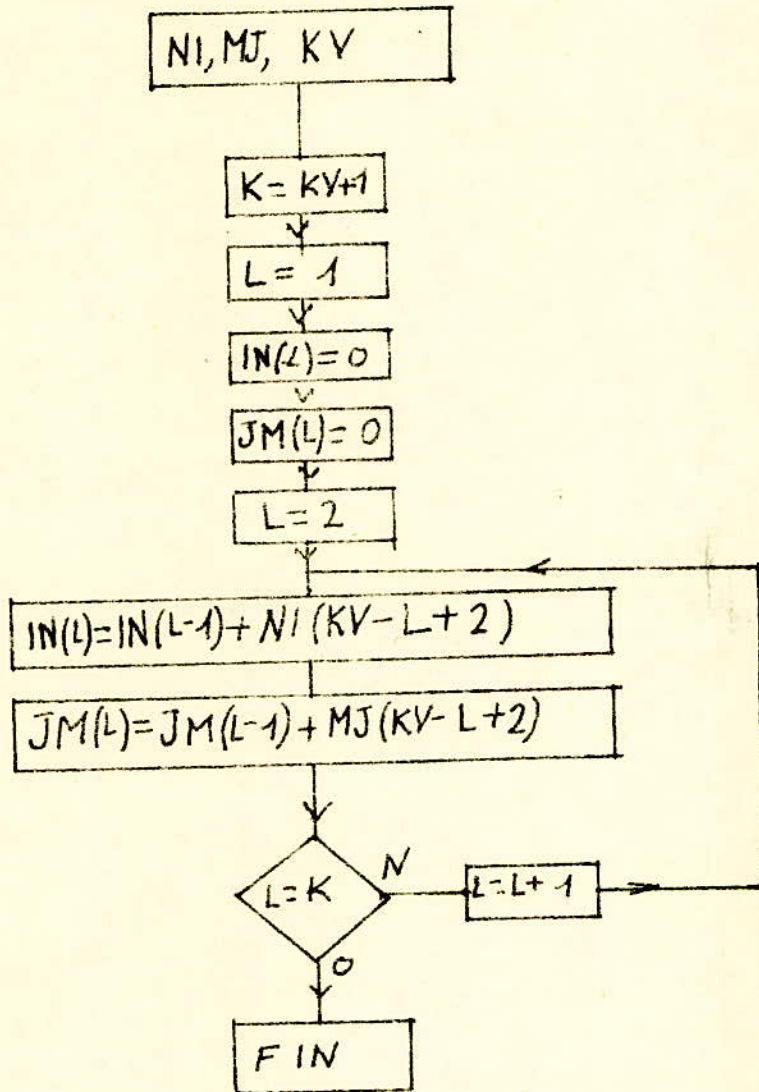 NI, MJ, KV
K = KV+1
L = 1
IN(L)=0
JM(L)=0
L=2
IN(L)=IN(L-1)+NI(KV-L+2)
JM(L)=JM(L-1)+MJ(KV-L+2)
L=K
N
L=L+1
O
FIN